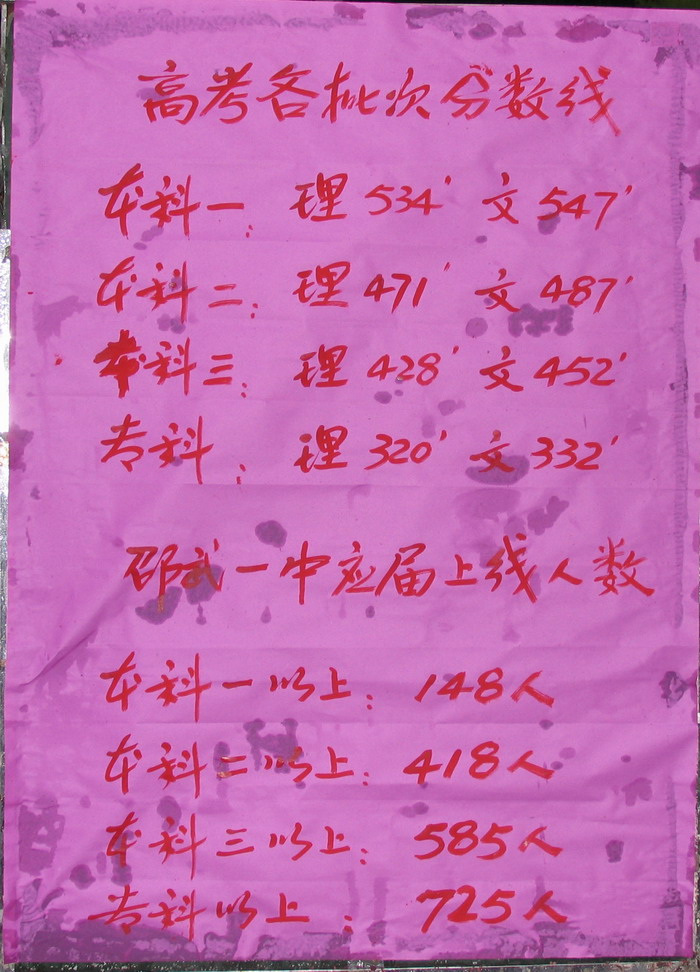 高考各批次分数线
本科一: 理 534' 文 547'
本科二: 理 471' 文 487'
本科三: 理 428' 文 452'
专科: 理 320' 文 332'
邵武一中应届上线人数
本科一以上: 148人
本科二以上: 418人
本科三以上: 585人
专科以上: 725人